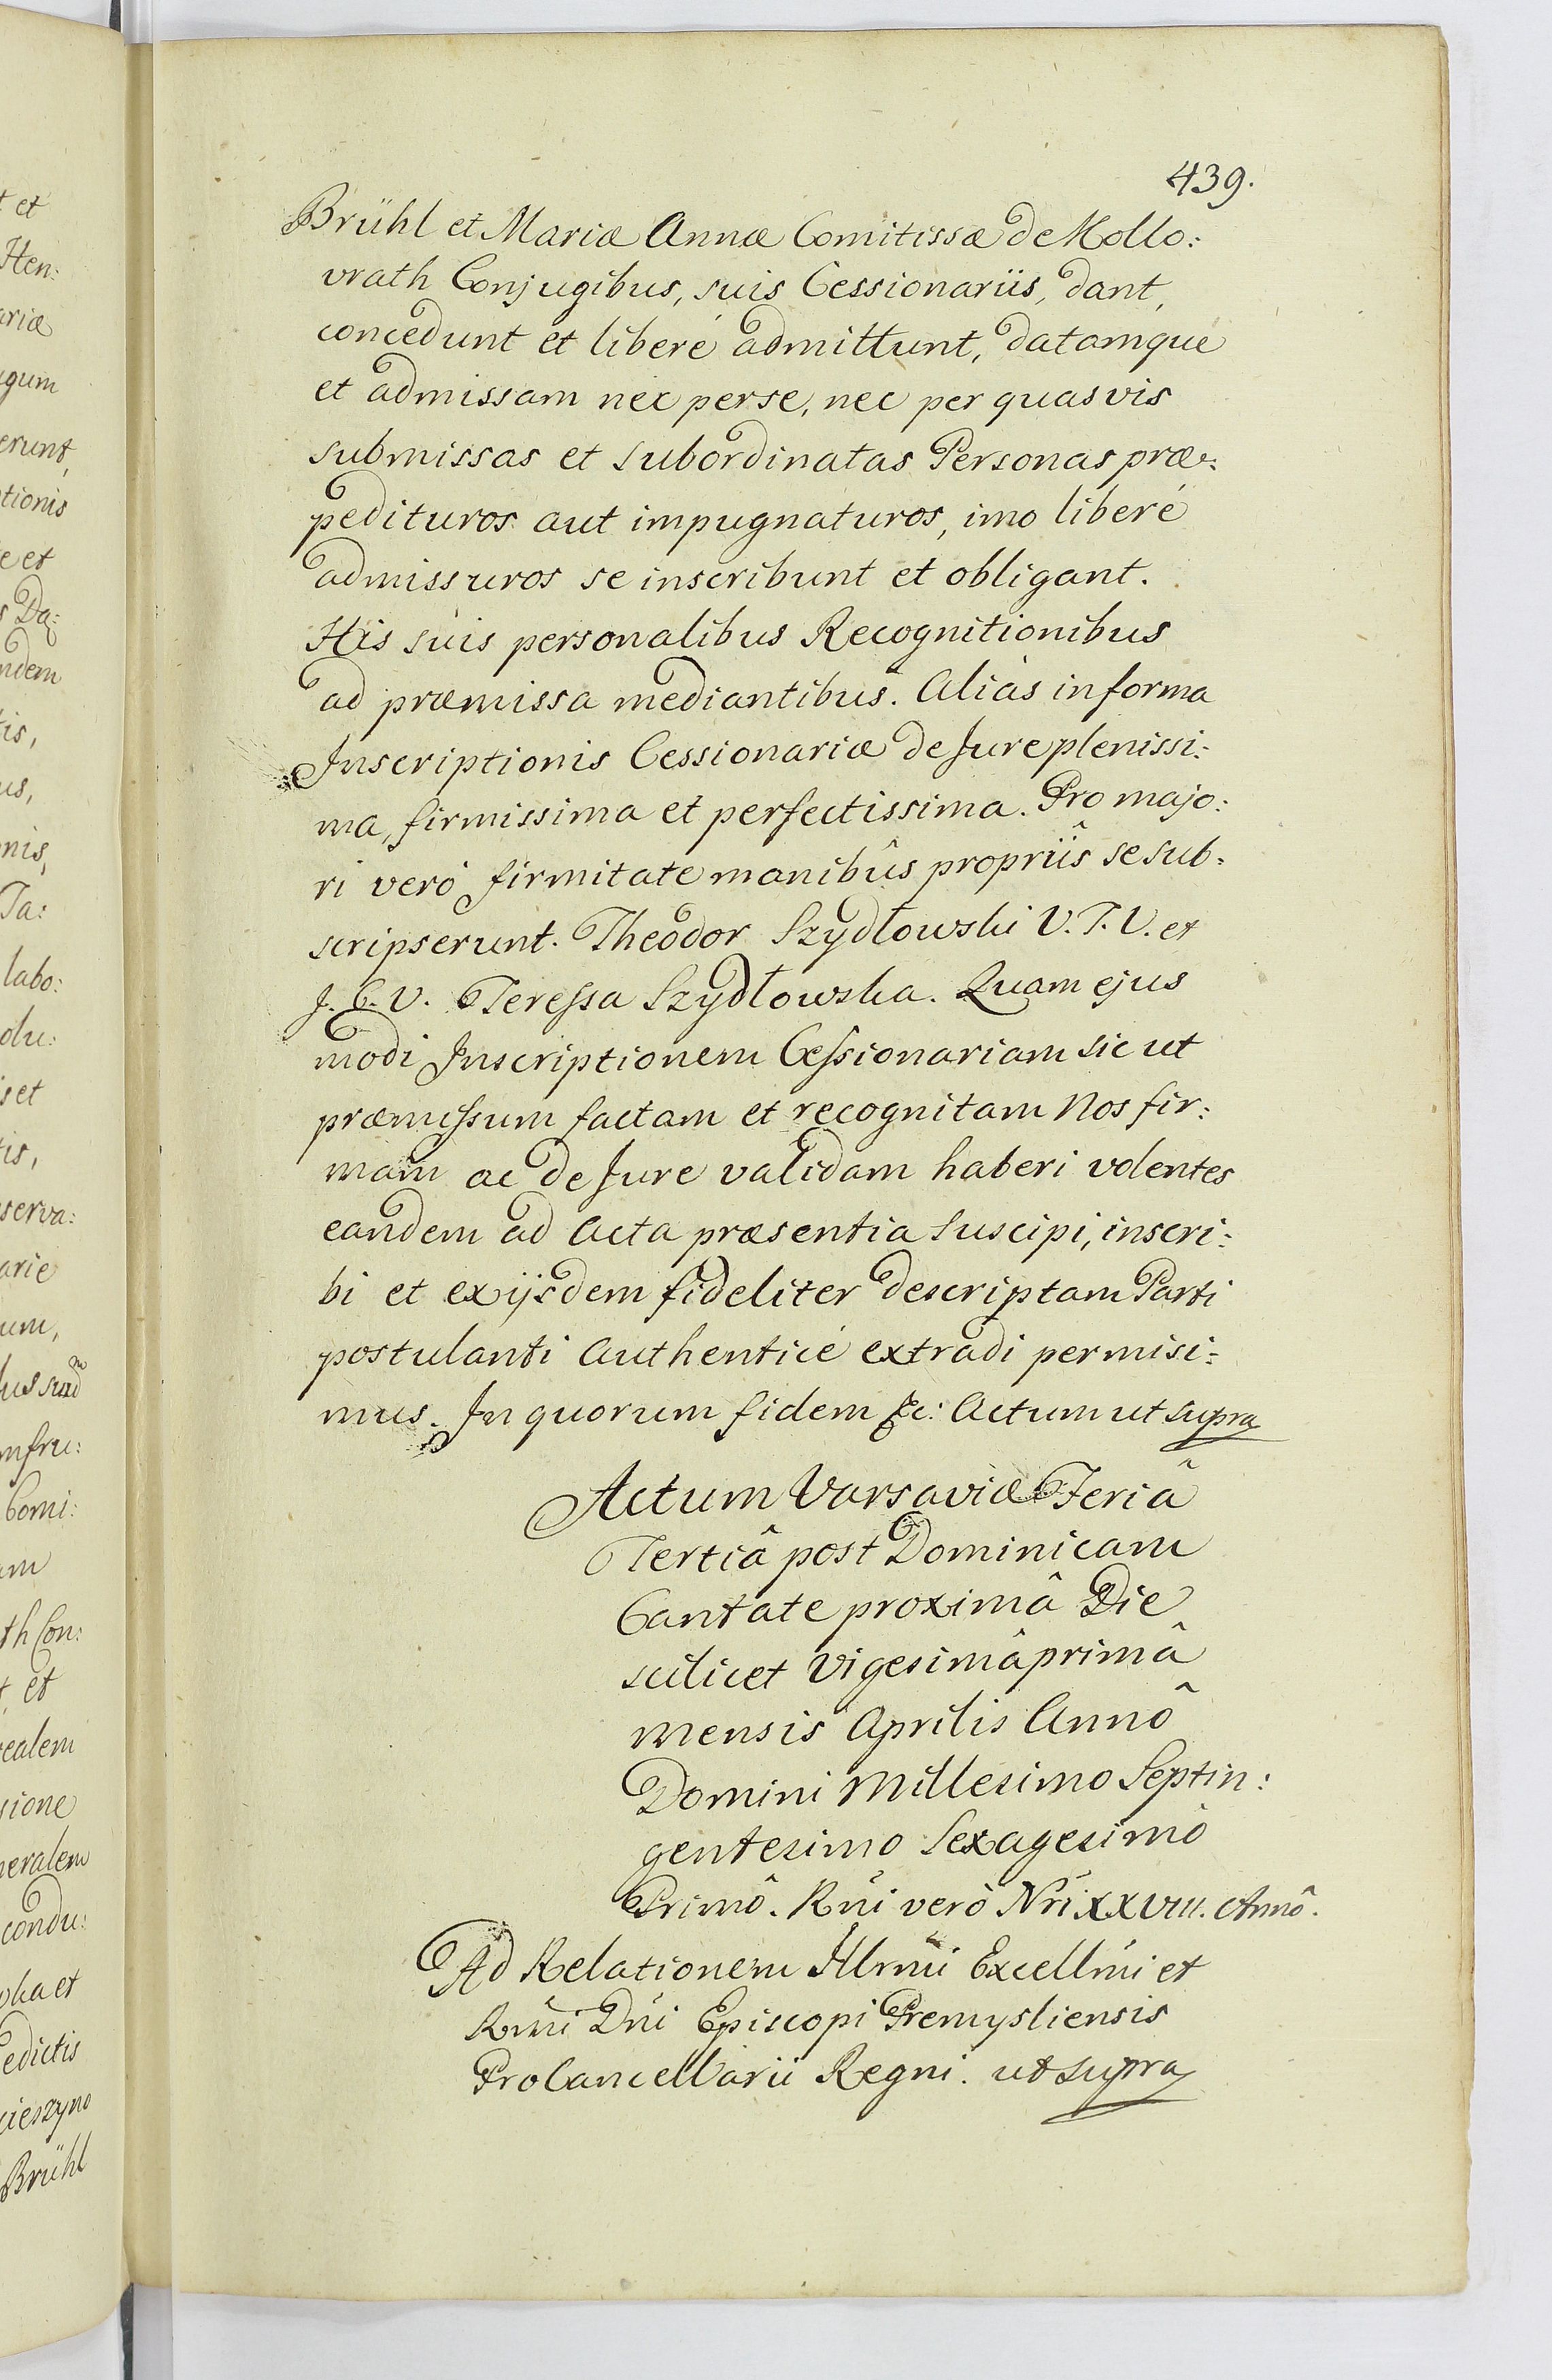 439.
Brühl et Mariæ Annæ Comitissæ de Kollo:
vrath Conjugibus, suis Cessionariis, dant,
concedunt et liberé admittunt, datamque
et admissam nec per se, nec per quasvis
submissas et subordinatas Personas præ:
pedituros aut impugnaturos, imo liberé
admissuros se inscribunt et obligant.
His suis personalibus Recognitionibus
ad præmissa mediantibus. Aliàs in forma
Inscriptionis Cessionariæ de Jure plenissi:
ma, firmissima et perfectissima. Pro majo:
ri veró firmitate manibûs propriîs se sub:
scripserunt. Theodor Szydłowski V. P. V. et
J. C. V. Teressa Szydłowska. Quam ejus
modi Inscriptionem Cessionariam sic ut
præmissum factam et recognitam Nos fir:
mam ac de Jure validam haberi volentes
eandem ad Acta præsentia suscipi, inscri:
bi et ex ijsdem fideliter descriptam Parti
postulanti Authenticé extradi permisi:
mus. In quorum fidem &c: Actum ut supra
Actum Varsaviæ Feriâ
Tertiâ post Dominicam
Cantate proximâ Die
scilicet vigesimâ primâ
mensis Aprilis Annô
Domini Millesimo Septin:
gentesimo Sexagesimô
Primô. Rni verò Nri XXVIII. Annô.
Ad Relationem Illrmi Excellmi et
Rmi Dni Episcopi Premysliensis
ProCancellarii Regni. ut supra
t et
Hen:
ariæ
ugum
erunt,
tionis
e et
s Da:
ndem
tis,
us,
nis,
Ta:
labo:
du:
is et
tis,
serva:
arie
um,
mfru:
Comi:
am
th Con:
t, et
realem
sione
neralem
condu:
ka et
edictis
cieszyno
Brühl